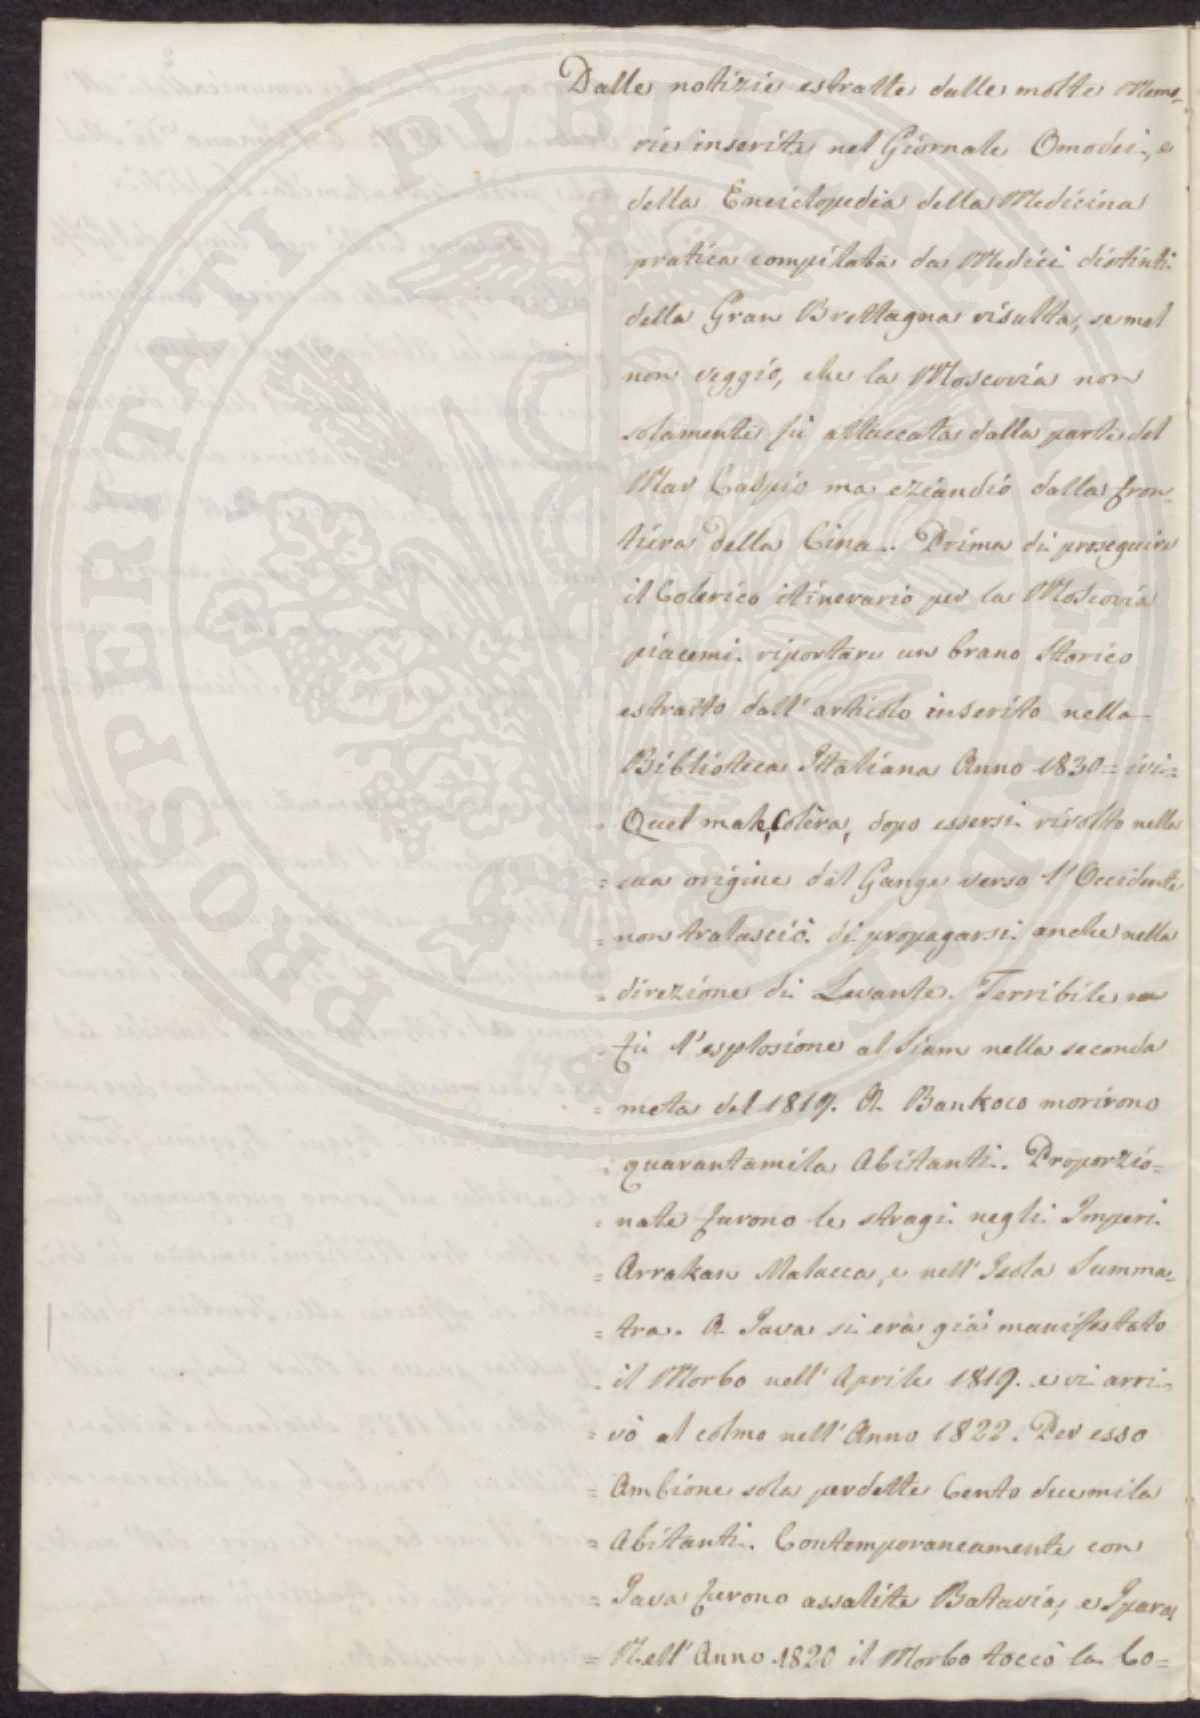 Dalle notizie estratte dalle molte Memo-
rie inserite nel Giornale Omodei, e
della Enciclopedia della Medicina
pratica compilata da Medici distinti
della Gran Brettagna risulta, se mal
non veggio, che la Moscovia non
solamente fù attaccata dalla parte del
Mar Caspio ma eziandio dalla fron-
tiera della Cina. Prima di proseguire
il Colerico itinerario per la Moscovia
piacemi riportare un brano Storico
estratto dall'articolo inserito nella
Biblioteca Italiana Anno 1830 = ivi =
Quel male, Colèra, dopo essersi rivolto nella
= sua origine dal Gange verso l'Occidente
= non tralasciò di propagarsi anche nella
= direzione di Levante. Terribile
= fù l'esplosione al Siam nella seconda
= metà del 1819. A Bankoco morirono
= quarantamila Abitanti. Proporzio=
= nate furono le stragi negli Imperi
= Arrakan Malacca, e nell'Isola Summa-
= tra. A Java si era già manifestato
= il Morbo nell'Aprile 1819. e vi arri-
= vò al colmo nell'Anno 1822. Per esso
= Ambione sola perdette Cento duemila
= Abitanti. Contemporaneamente con
= Java furono assalite Batavia, e Ipara
= Nell'Anno 1820 il Morbo toccò la Co=
PROSPERITATI PUBLICAE AUGENDAE